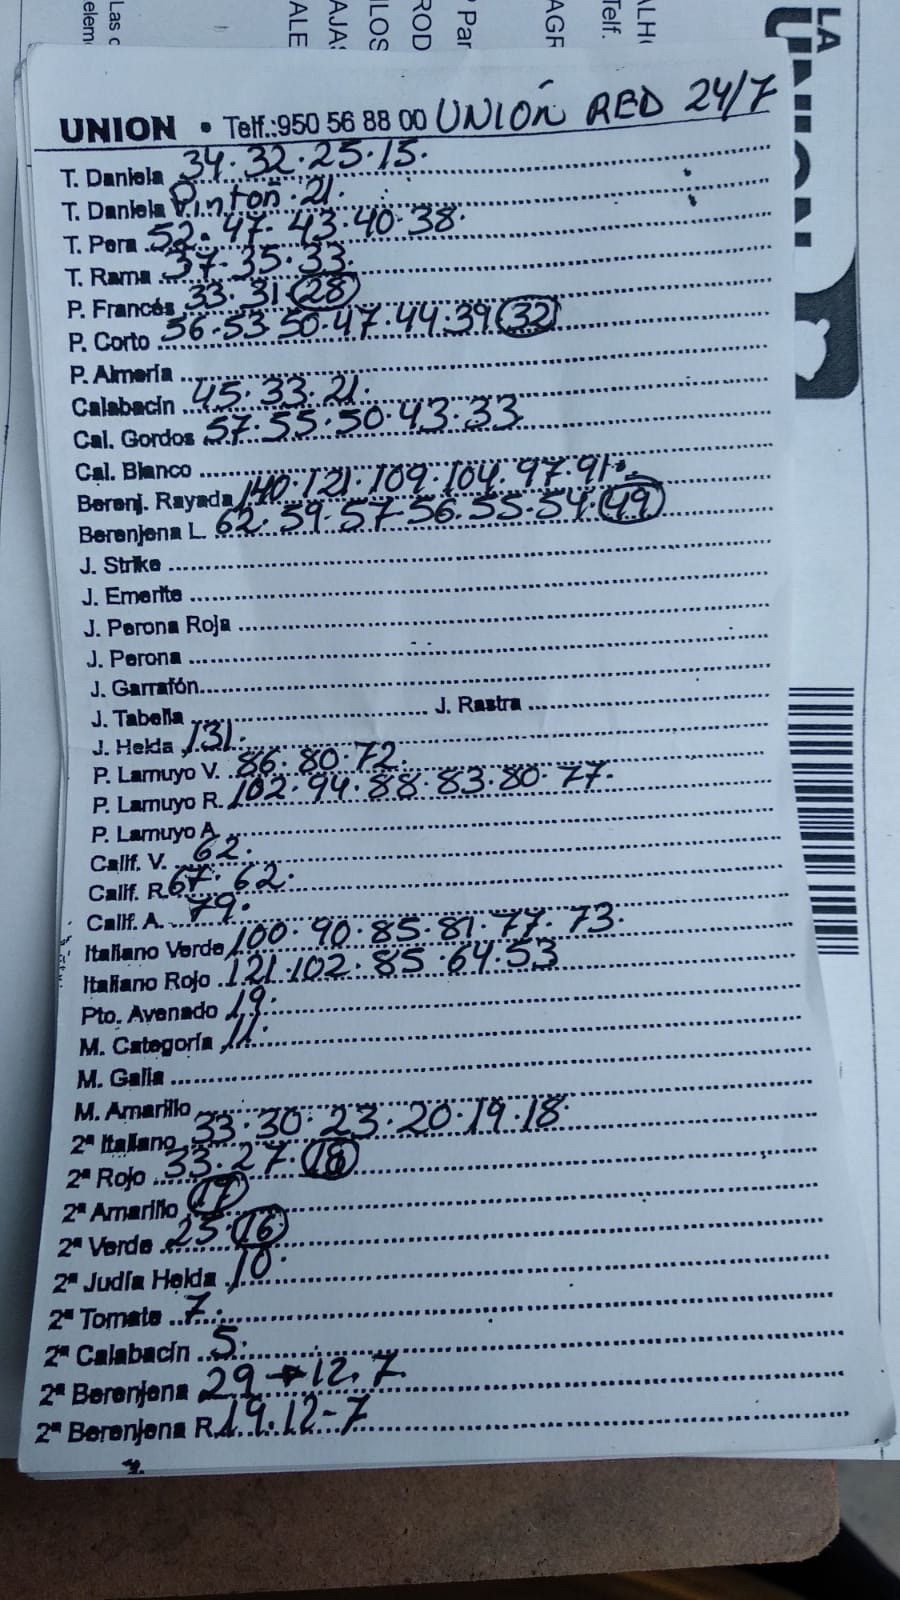 Las c
elem
ALE
AJA
ILOS
ROD
Par
AGR
Telf.
ALH
LA
UNION
UNION • Telf.:950 56 88 00 UNIÓN RED 24/7
T. Daniela 34.32.25.15.
T. Daniela Pinton.21.
T. Pera 52.47.43.40.38.
T. Rama 37.35.33.
P. Francés 33.31.28
P. Corto 56.53.50.47.44.39.32
P. Almería
Calabacín 45.33.21.
Cal. Gordos 57.55.50.43.33
Cal. Blanco
Berenj. Rayada 140.121.109.104.97.91.
Berenjena L. 62.59.57.56.55.54.49
J. Strike
J. Emerite
J. Perona Roja
J. Perona
J. Garrafón
J. Tabella J. Rastra
J. Helda 131.
P. Lamuyo V. 86.80.72.
P. Lamuyo R. 102.94.88.83.80.77.
P. Lamuyo A.
Calif. V. 62.
Calif. R. 67.62.
Calif. A. 79.
Italiano Verde 100.90.85.81.77.73.
Italiano Rojo 121.102.85.64.53
Pto. Avenado 19.
M. Categoría 11.
M. Galia
M. Amarillo
2ª Italiano 33.30.23.20.19.18.
2ª Rojo 33.27.18
2ª Amarillo 17
2ª Verde 25.16
2ª Judía Helda 10.
2ª Tomate 7.
2ª Calabacín 5.
2ª Berenjena 29→12.7
2ª Berenjena R. 19.12-7